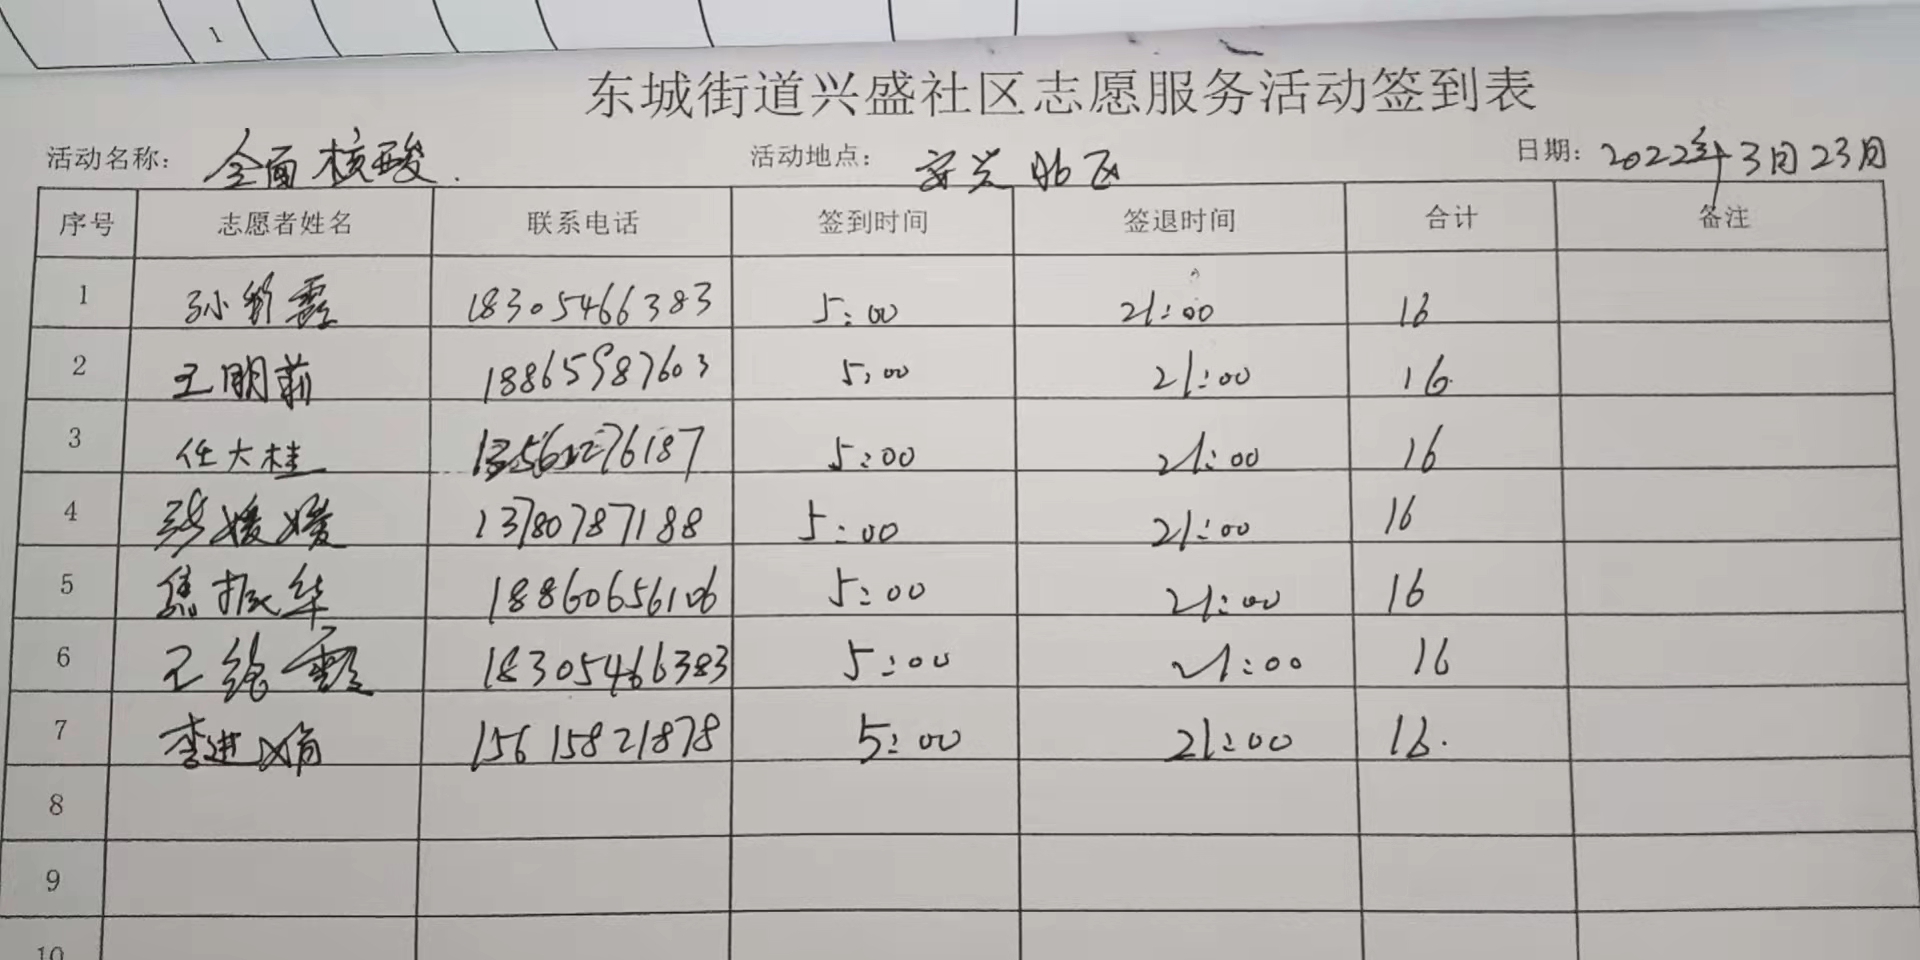 1
东城街道兴盛社区志愿服务活动签到表
活动名称: 全面核酸. 活动地点: 安兴北区 日期: 2022年3月23日
序号 志愿者姓名 联系电话 签到时间 签退时间 合计 备注
1 孙彩霞 18305466383 5:00 21:00 16
2 王明莉 18865987603 5:00 21:00 16.
3 任大桂 13561276187 5:00 21:00 16
4 张媛媛 13780787188 5:00 21:00 16
5 焦振华 18860656106 5:00 21:00 16
6 王艳霞 18305466383 5:00 21:00 16
7 李进娟 15615821878 5:00 21:00 16.
8
9
10